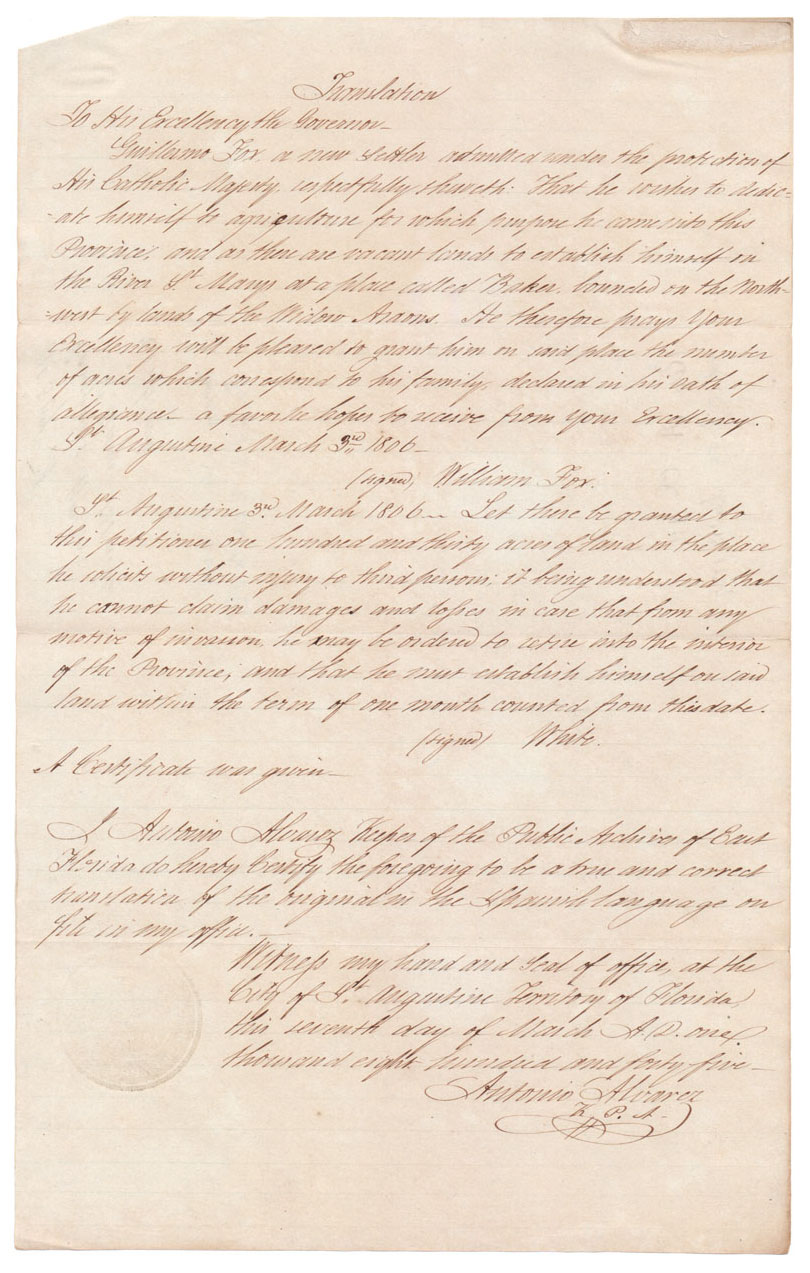 Translation
To His Excellency the Governor—
Guillermo Fox, a new settler admitted under the protection of
His Catholic Majesty, respectfully sheweth: That he wishes to dedic-
-ate himself to agriculture for which purpose he came into this
Province; and as there are vacant lands to establish himself in
the River St. Marys at a place called Baker, bounded on the North-
-west by lands of the Widow Arons. He therefore prays Your
Excellency will be pleased to grant him on said place the number
of acres which correspond to his family, declared in his oath of
allegiance— a favor he hopes to receive from Your Excellency.
St. Augustine March 3rd 1806—
(signed) William Fox.
St. Augustine 3rd. March 1806— Let there be granted to
this petitioner one hundred and thirty acres of land in the place
he solicits without injury to third persons; it being understood that
he cannot claim damages and losses in case that from any
motive of invasion, he may be ordered to retire into the interior
of the Province; and that he must establish himself on said
land within the term of one month counted from this date.
(signed) White.
A Certificate was given—
I Antonio Alvarez Keeper of the Public Archives of East
Florida do hereby Certify the foregoing to be a true and correct
translation of the original in the Spanish language on
file in my office.—
Witness my hand and Seal of office, at the
City of St. Augustine Territory of Florida,
this seventh day of March A.D. one
thousand eight hundred and forty five—
Antonio Alvarez
K. P. A.